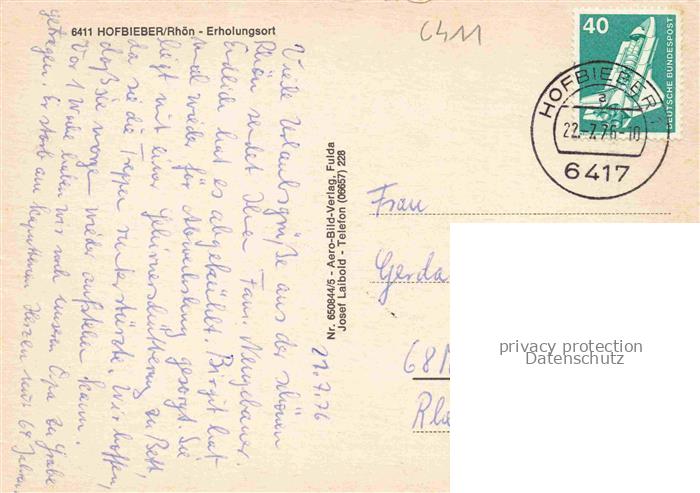 6411 HOFBIEBER/Rhön - Erholungsort
6411
40
DEUTSCHE BUNDESPOST
HOFBIEBER 1
a
22.-7.76-10
6417
Nr. 650844/5 - Aero-Bild-Verlag, Fulda
Josef Laibold - Telefon (06657) 228
21.7.76
Viele Urlaubsgrüße aus der schönen
Rhön sendet Ihnen Fam.
hat es abgekühlt. Birgit hat
mal wieder für Abwechslung gesorgt. Sie
liegt mit einer Gehirnerschütterung zu Bett,
da sie die Treppe runterstürzte. Wir hoffen,
daß sie morgen wieder aufstehen kann.
Vor 1 Woche haben wir noch unseren Opa zu Grabe
getragen. Er starb am kaputten Herzen mit 64 Jahren.
Frau
Gerda
68
privacy protection
Datenschutz